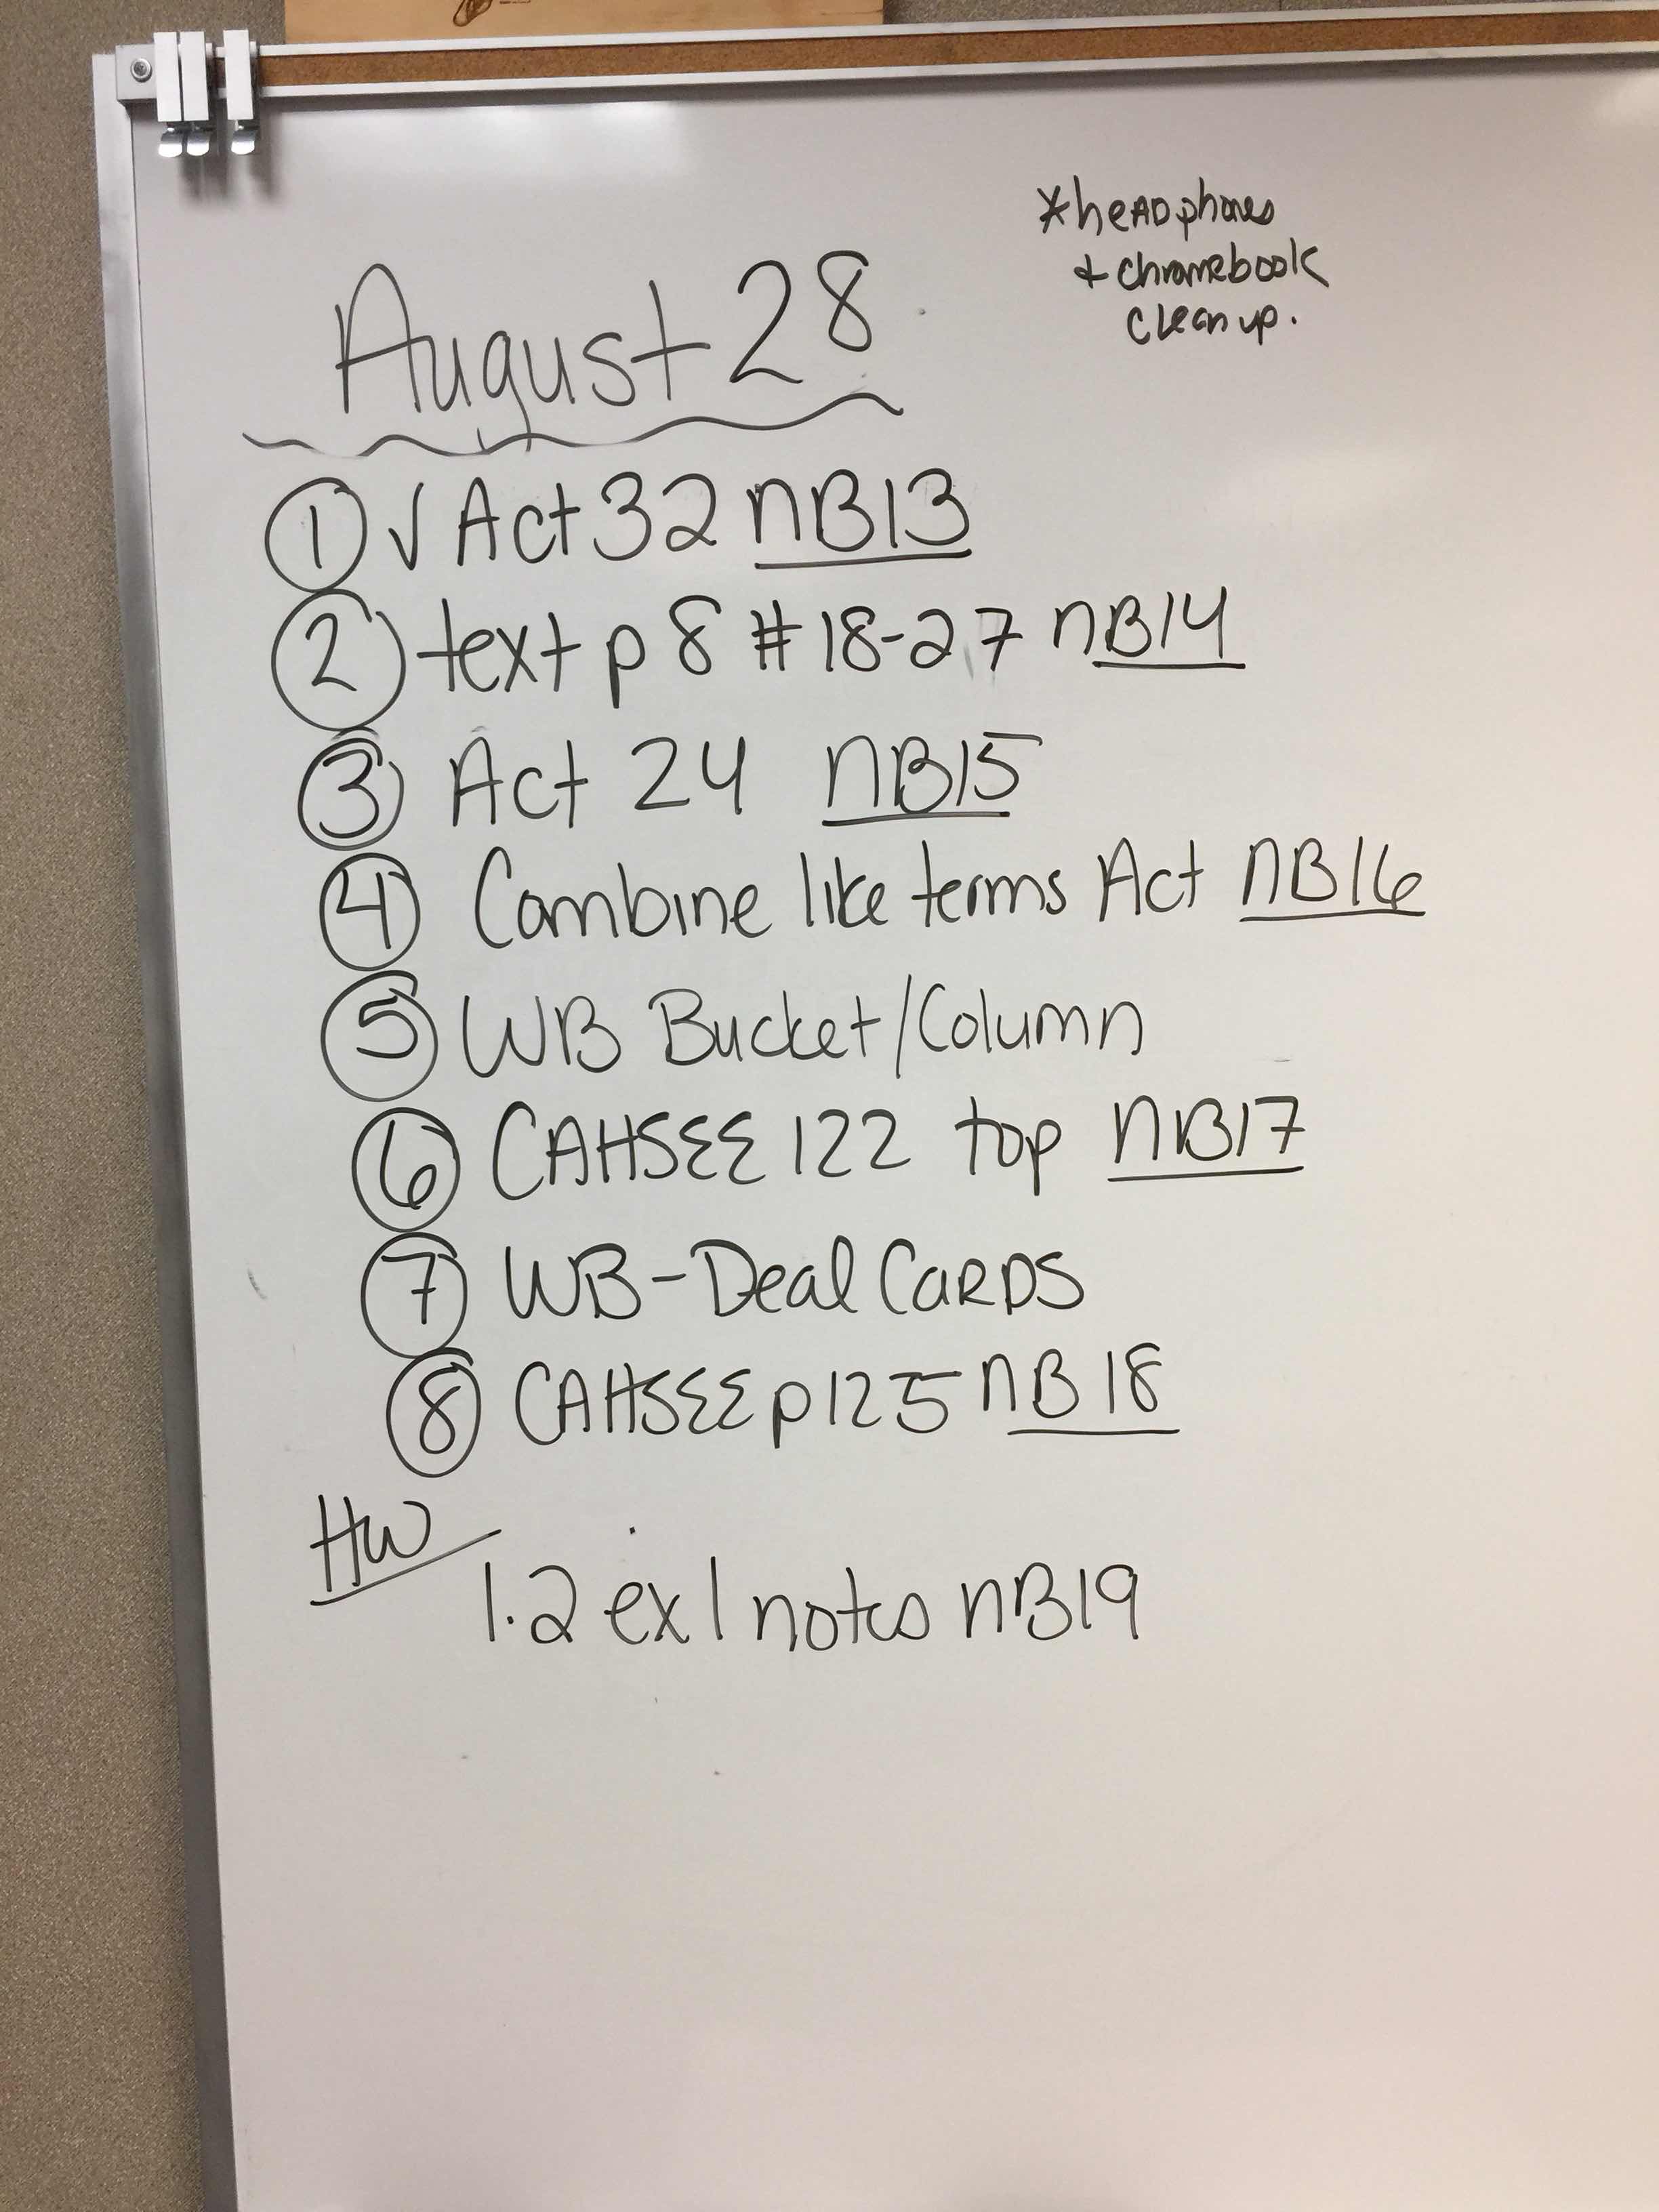 *headphones
+ chromebook
clean up.
August 28
① √ Act 32 nB13
② text p 8 # 18-27 nB14
③ Act 24 nB15
④ Combine like terms Act nB16
⑤ WB Bucket/Column
⑥ CAHSEE 122 top nB17
⑦ WB-Deal CaRDS
⑧ CAHSEE p125 nB 18
HW
1.2 ex 1 notes nB19